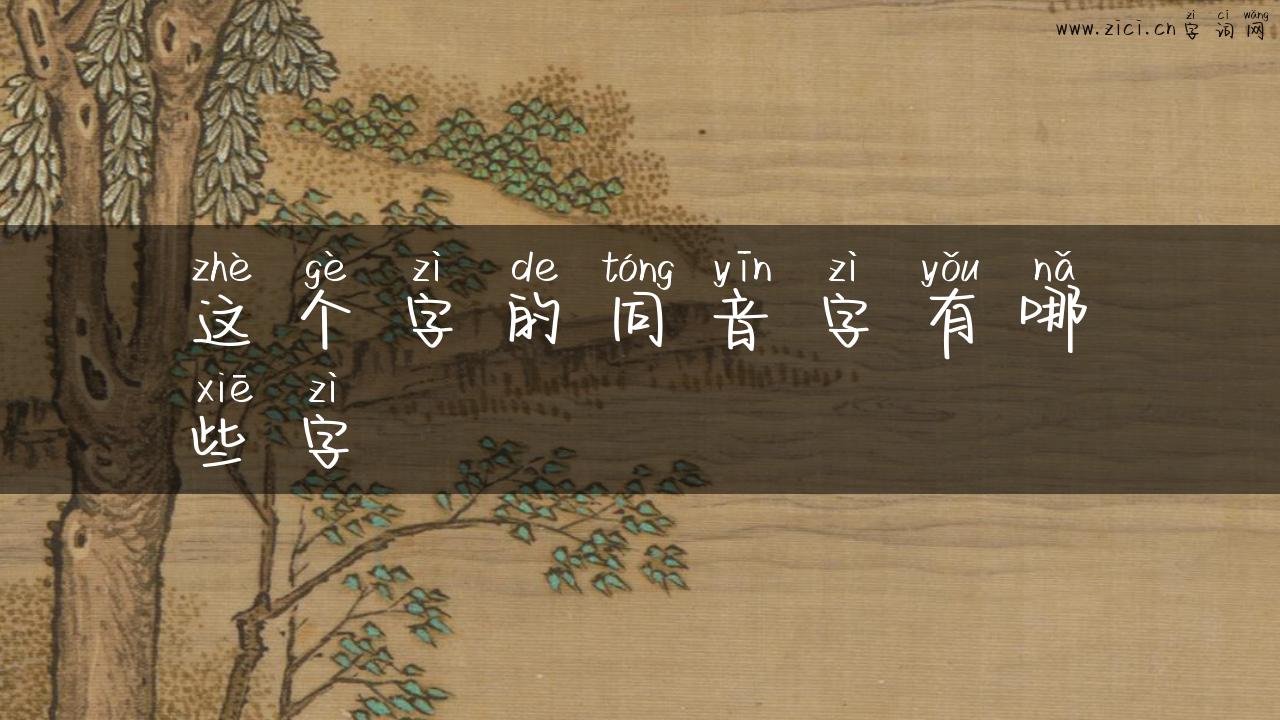 zì cí wǎng
www.zici.cn 字词网
zhè gè zì de tóng yīn zì yǒu nǎ
这个字的同音字有哪
xiē zì
些字